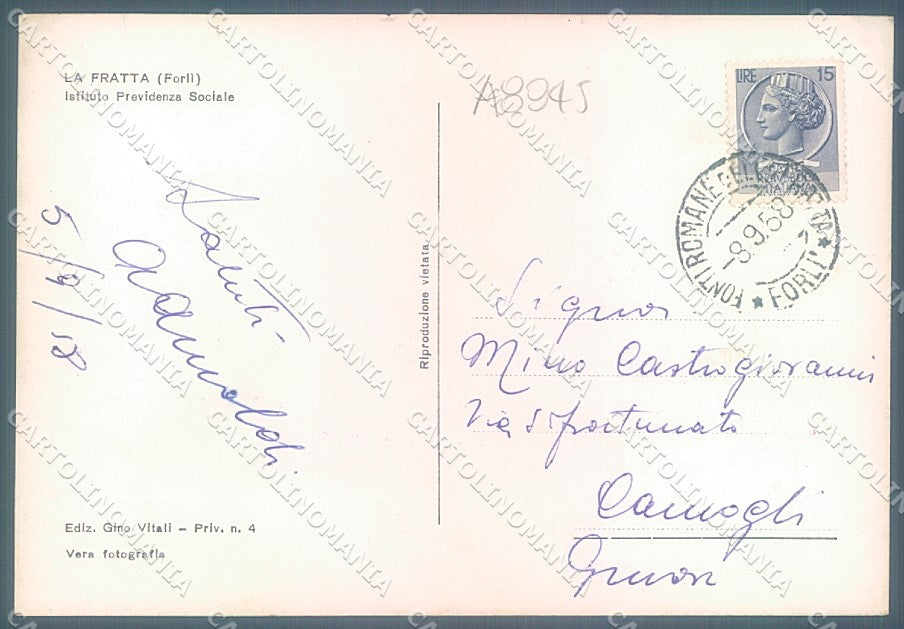 LA FRATTA (Forlì)
Istituto Previdenza Sociale
5/9/58
Saluti
Ediz. Gino Vitali – Priv. n. 4
Vera fotografia
Riproduzione vietata
A8945
LIRE 15
REPVBBLICA
ITALIANA
FONTI ROMANE DELLA FRATTA
-8.9.58
★ FORLI' ★
Signor
Mino Castrogiovanni
Via S. Fortunato
Camogli
Genova
CARTOLINOMANIA